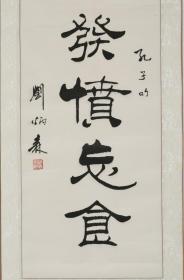 孔子吟
發憤忘食
劉炳森